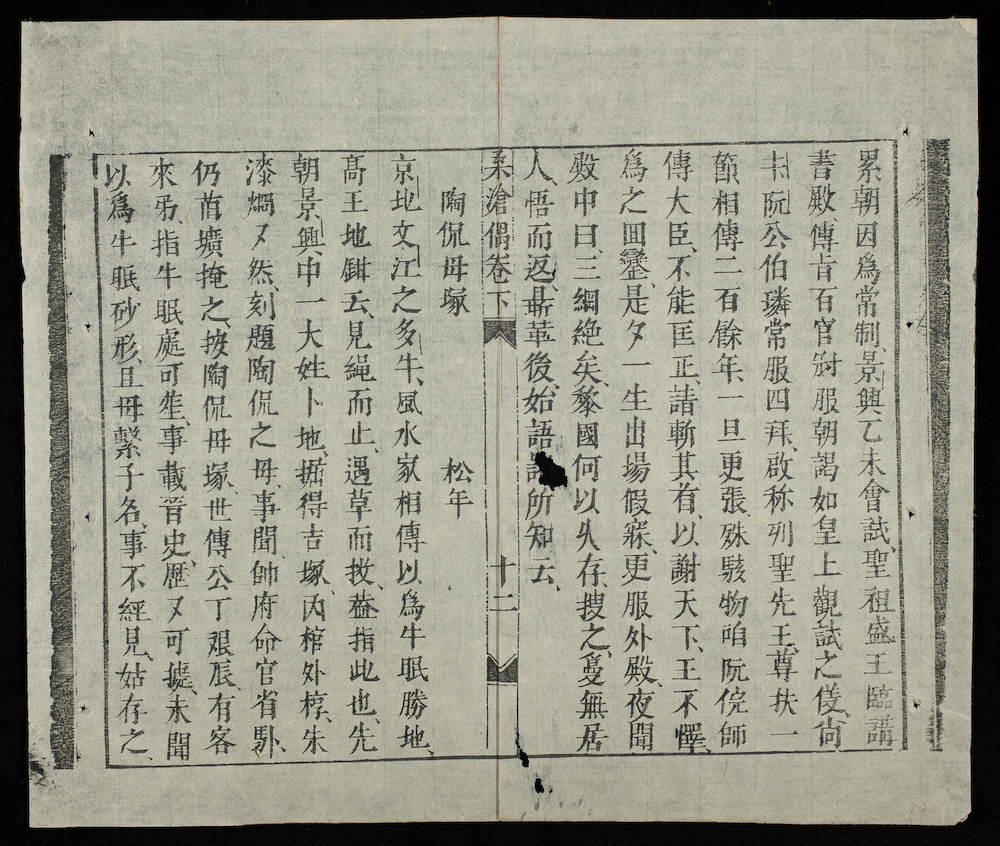 累朝因爲常制、景興乙未會試、聖祖盛王臨講
書殿、傳旨百官對服朝謁如皇上觀試之儀、尚
書阮公伯璘常服四拜、啟称列聖先王、尊扶一
節、相傳二百餘年、一旦更張、殊駭物听、阮俒師
傳大臣、不能匡正、請斬其首、以謝天下、王不懌、
爲之囬鑾、是夕一生出場假寐、更服外殿、夜聞
殿中曰、三綱絶矣、黎國何以久存、搜之、敻無居
人、悟而返、具鼎革後、始語所知云、
桑滄偶卷下 十二
陶侃母塚 松年
京北文江之多牛、風水家相傳以爲牛眠勝地、
高王地鉗云、見繩而止、遇草而救、葢指此也、先
朝景興中一大姓卜地、掘得吉塚、內棺外椁、朱
漆炯又然、刻題陶侃之母、事聞、帥府命官省勘、
仍酋壙掩之、按陶侃母塚、世傳公丁艰辰、有客
來弔、指牛眠處可塟、事載晉史、歷又可據、未聞
以爲牛眠砂形、且母繫子名、事不經見、姑存之、